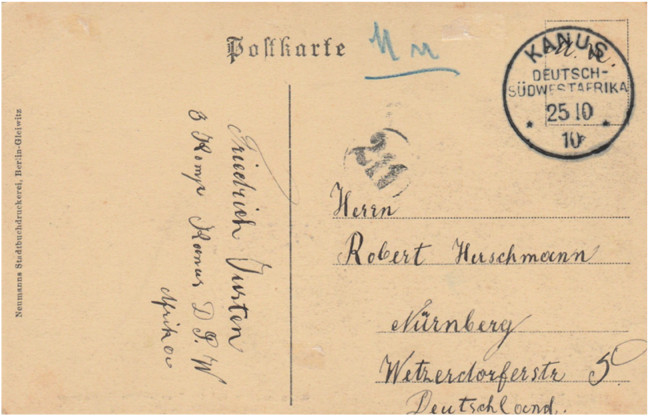 Postkarte
KANUS
DEUTSCH-
SÜDWESTAFRIKA
25 10
10
211
Herrn
Robert Hirschmann
Nürnberg
Wetzendorferstr 5
Deutschland.
Friedrich
3 Komp Kanus D. S. W
Afrika
Neumanns Stadtbuchdruckerei, Berlin-Gleiwitz